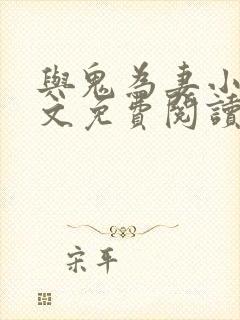 與鬼為妻小
文免費閱讀
宋平